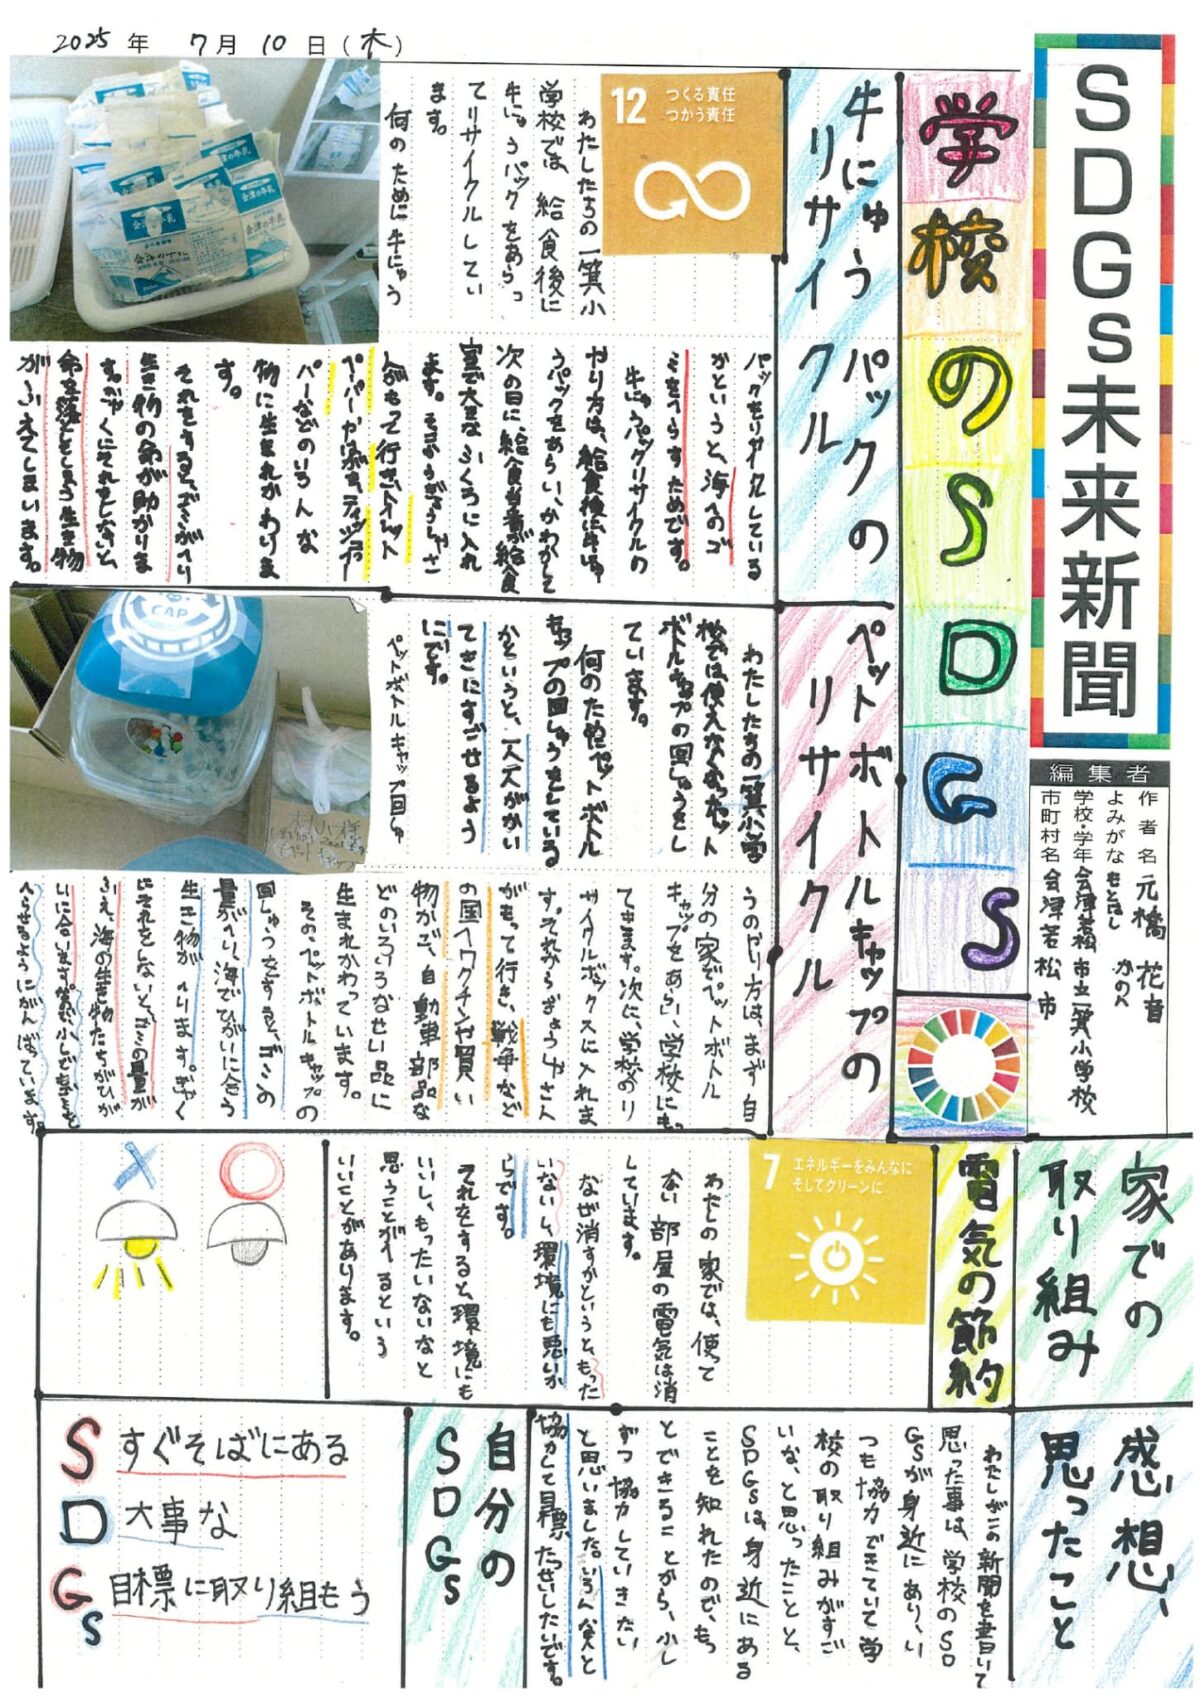 2025年 7月10日(木)
SDGs未来新聞
編集者
作者名 元橋 花音
よみがな もとはし かのん
学校・学年 会津若松市立一箕小学校
市町村名 会津若松市
学校のSDGs
牛にゅうパックの
リサイクル
12 つくる責任
つかう責任
わたしたちの一箕小
学校では、給食後に
牛にゅうパックをあらっ
てリサイクルしてい
ます。
何のために牛にゅう
パックをリサイクルしている
かというと、海へのゴ
ミをへらすためです。
牛にゅうパックリサイクルの
やり方は、給食後に牛にゅ
うパックをあらい、かわかして
次の日に、給食当番が給食
室で大きなふくろに入れ
ます。そこからぎょうしゃさ
んがもって行き、トイレット
ペーパーやボックスティッシュペー
パーなどのいろんな
物に生まれかわりま
す。
それをすると、ゴミがへり
生き物の命が助かりま
す。ぎゃくにそれをしないと
命を落としてしまう生き物
がふえてしまいます。
会津の牛乳
ペットボトルキャップの
リサイクル
わたしたちの一箕小学
校では使えなくなったペット
ボトルキャップの回しゅうをし
ています。
何のためにペットボトル
キャップの回しゅうをしている
かというと、一人一人がかい
てきにすごせるよう
にです。
ペットボトルキャップ回しゅ
うのやり方は、まず自
分の家でペットボトル
キャップをあらい、学校にもっ
てきます。次に、学校のリ
サイクルボックスに入れま
す。それからぎょうしゃさん
がもって行き、戦争など
の国へワクチンや買い
物かご、自動車部品な
どのいろいろなせい品に
生まれかわっています。
そのペットボトルキャップの
回しゅうをすると、ゴミの
量がへり、海でひがいに合う
生き物がへります。ぎゃく
にそれをしないと、ゴミの量が
ふえ、海の生き物たちがひが
いに合います。
へらせるようにがんばっています。
CAP
家での
取り組み
電気の節約
7 エネルギーをみんなに
そしてクリーンに
わたしの家では、使って
ない部屋の電気は消
しています。
なぜ消すかというと、もった
いないし、環境にも悪いか
らです。
それをすると、環境にも
いいし、もったいないなと
思うことがへるという
いいことがあります。
感想、
思ったこと
わたしがこの新聞を書いて
思った事は、学校のSD
GSが身近にあり、い
つも協力できていて学
校の取り組みがすご
いな、と思ったことと、
SDGSは、身近にある
ことを知れたので、もっ
とできることから、少し
ずつ協力していきたい
と思いました。いろんな人と
協力して目標たっせいしたいです。
自分の
SDGs
S すぐそばにある
D 大事な
Gs 目標に取り組もう